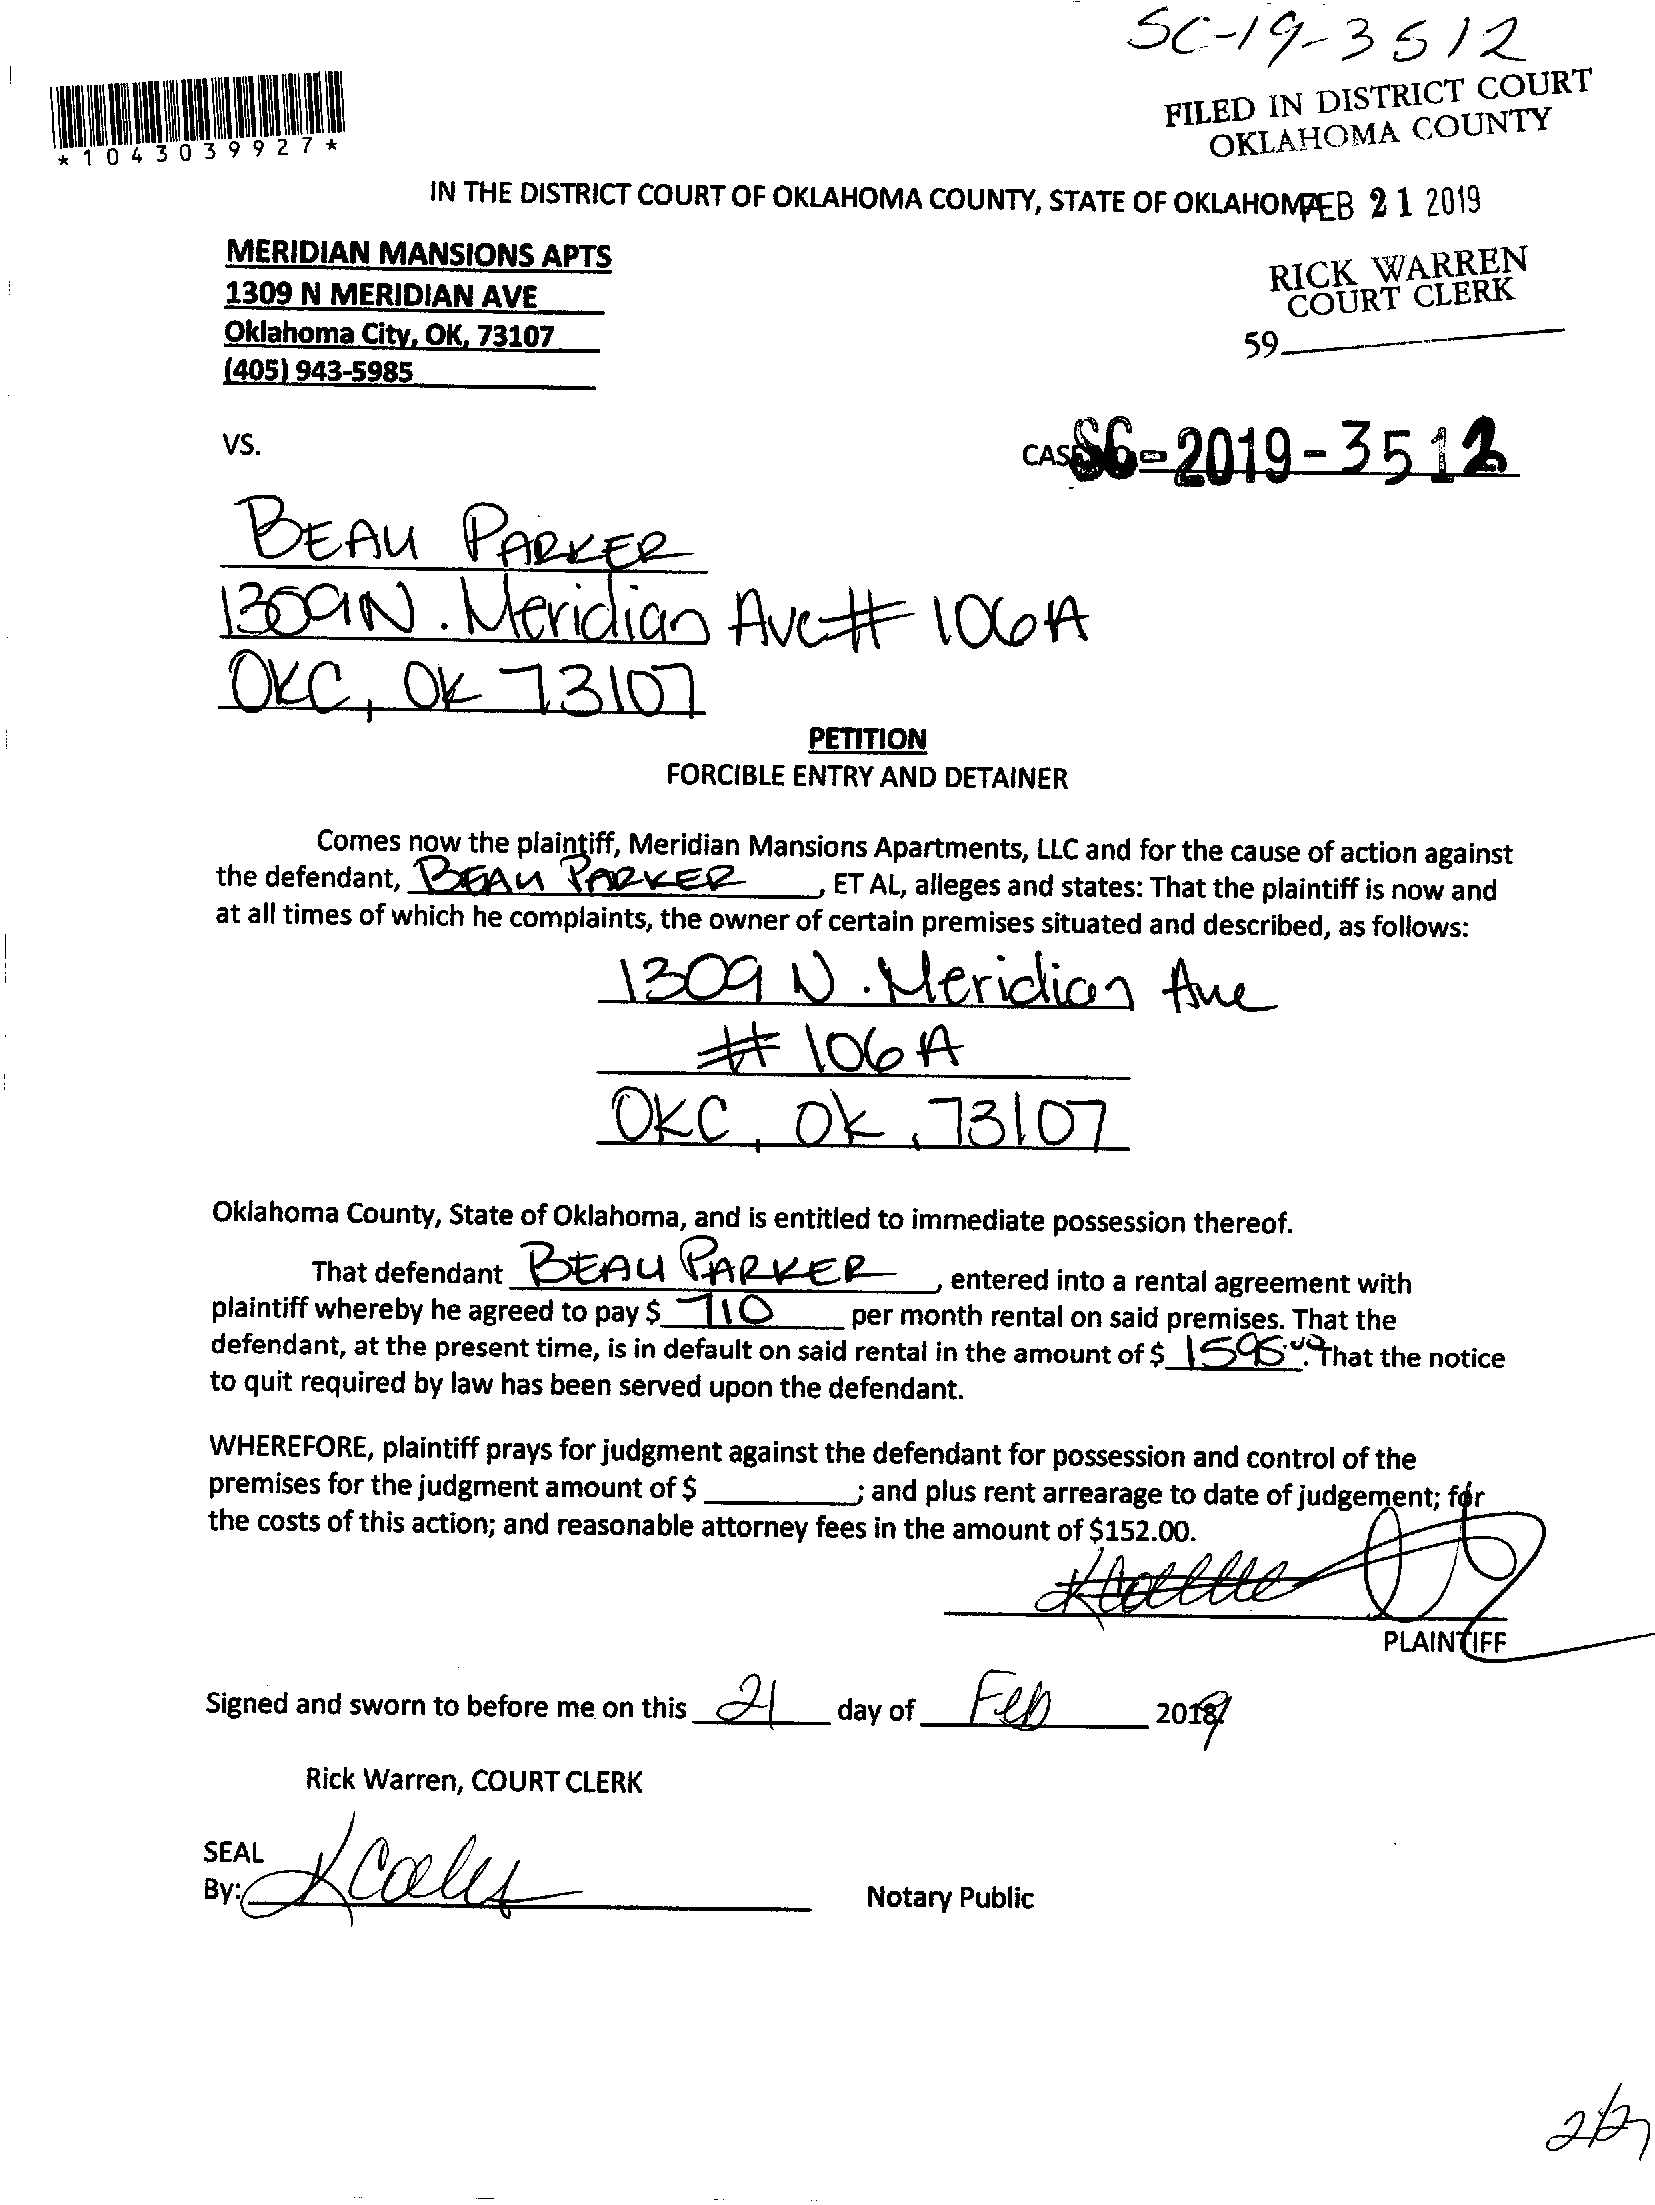 SC-19-3512
FILED IN DISTRICT COURT
OKLAHOMA COUNTY
*1043039927*
IN THE DISTRICT COURT OF OKLAHOMA COUNTY, STATE OF OKLAHOMA
FEB 21 2019
MERIDIAN MANSIONS APTS
1309 N MERIDIAN AVE
Oklahoma City, OK, 73107
(405) 943-5985
RICK WARREN
COURT CLERK
59
VS.
CAS SC-2019-3512
BEAU PARKER
1309 N. Meridian Ave # 106A
OKC, OK 73107
PETITION
FORCIBLE ENTRY AND DETAINER
Comes now the plaintiff, Meridian Mansions Apartments, LLC and for the cause of action against
the defendant, BEAU PARKER, ET AL, alleges and states: That the plaintiff is now and
at all times of which he complaints, the owner of certain premises situated and described, as follows:
1309 N. Meridian Ave
# 106A
OKC, OK, 73107
Oklahoma County, State of Oklahoma, and is entitled to immediate possession thereof.
That defendant BEAU PARKER, entered into a rental agreement with
plaintiff whereby he agreed to pay $ 710 per month rental on said premises. That the
defendant, at the present time, is in default on said rental in the amount of $ 1595.00. That the notice
to quit required by law has been served upon the defendant.
WHEREFORE, plaintiff prays for judgment against the defendant for possession and control of the
premises for the judgment amount of $ ; and plus rent arrearage to date of judgement; for
the costs of this action; and reasonable attorney fees in the amount of $152.00.
PLAINTIFF
Signed and sworn to before me on this 21 day of Feb 2019
Rick Warren, COURT CLERK
SEAL
By:
Notary Public